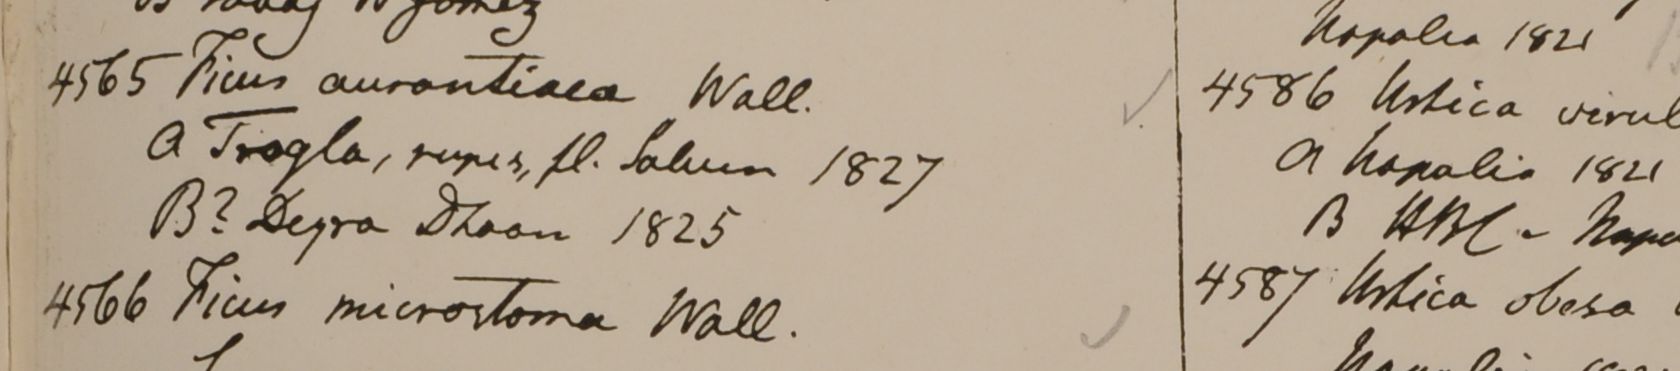 Gomez
4565 Ficus aurantiaca Wall.
A Trogla, rupes, fl. Saluen 1827
B? Deyra Dhoon 1825
4566 Ficus microstoma Wall.
Napalia 1821
4586 Urtica virul
A Napalia 1821
B HBC - Napa
4587 Urtica obesa